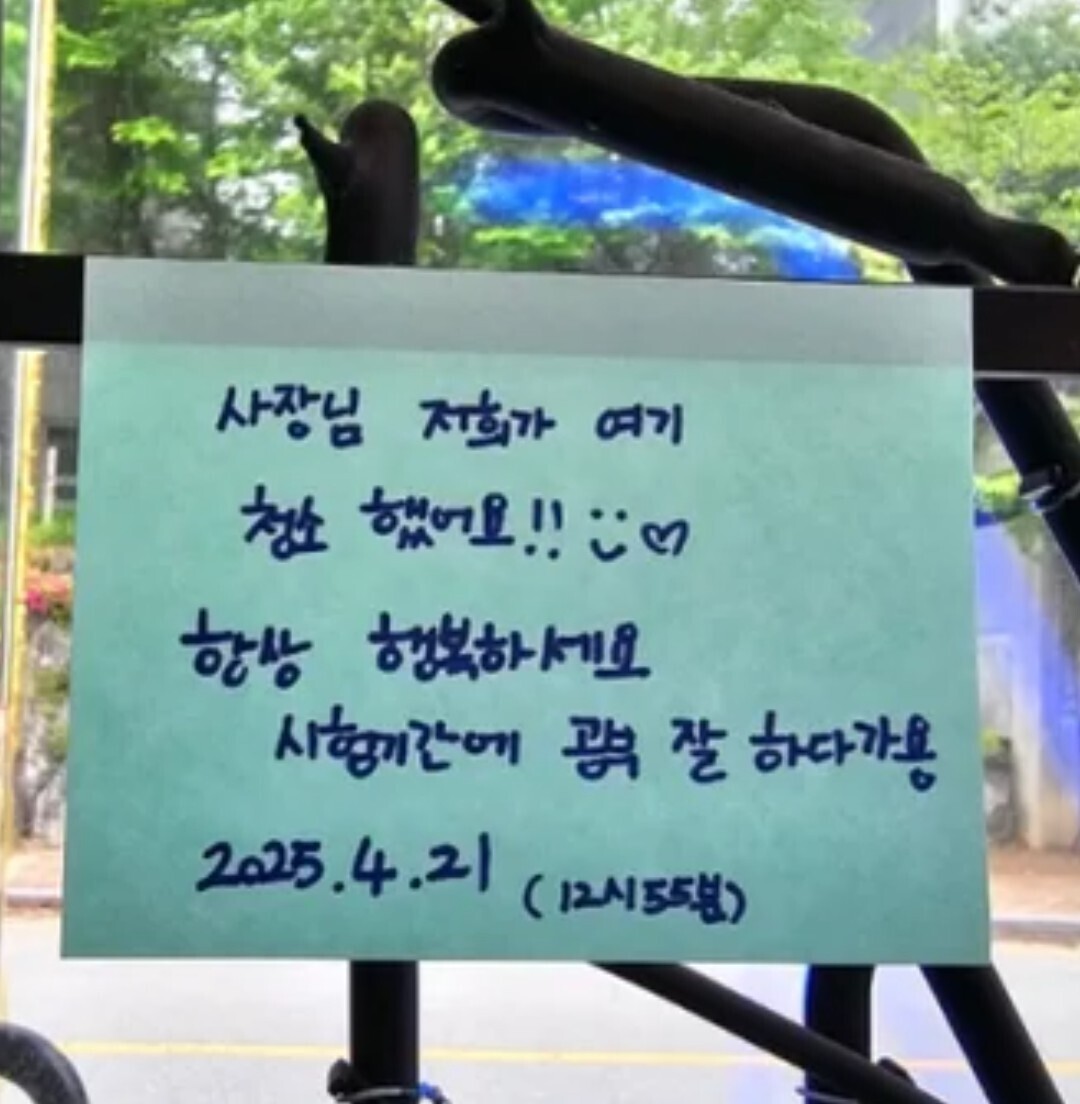 사장님 저희가 여기
청소 했어요!!
항상 행복하세요
시험기간에 공부 잘 하다가용
2025.4.21 (12시55분)